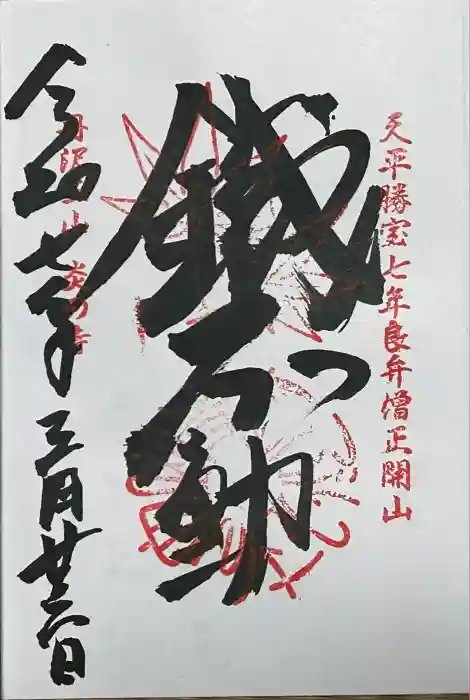 天平勝宝七年良弁僧正開山
鐵不動
令和七年三月廿二日